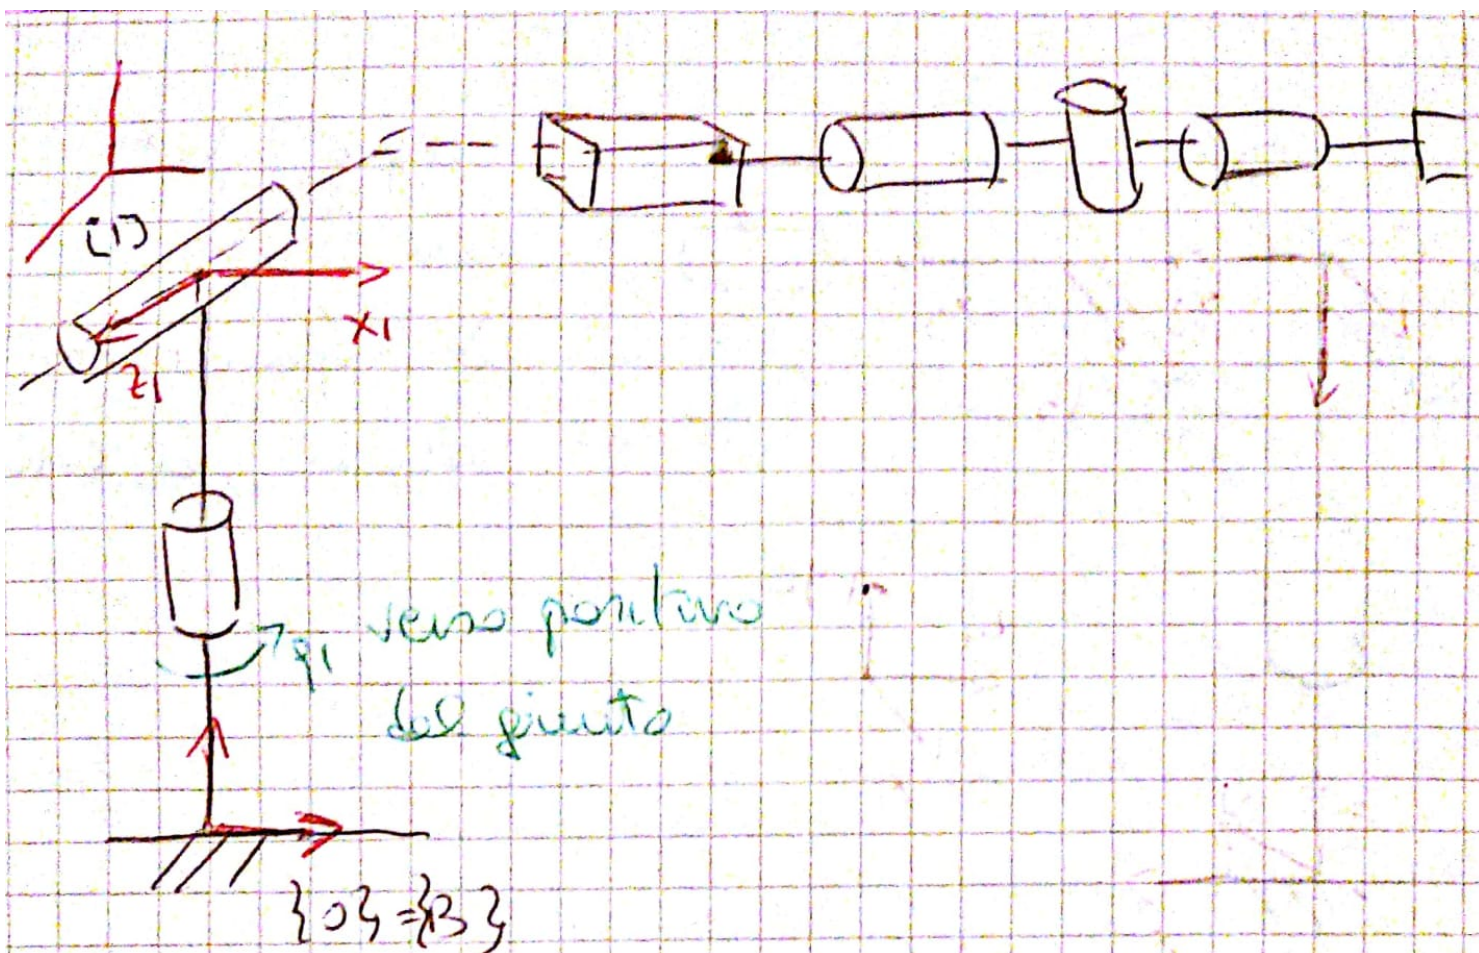 {1}
x1
z1
q1 verso positivo
del giunto
{0}={B}